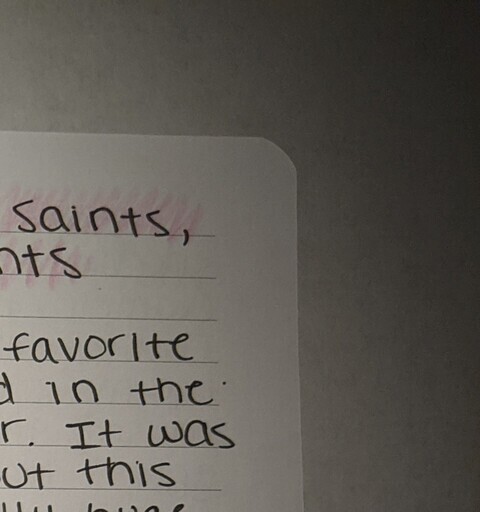 saints,
nts
favorite
d in the
r. It was
ut this